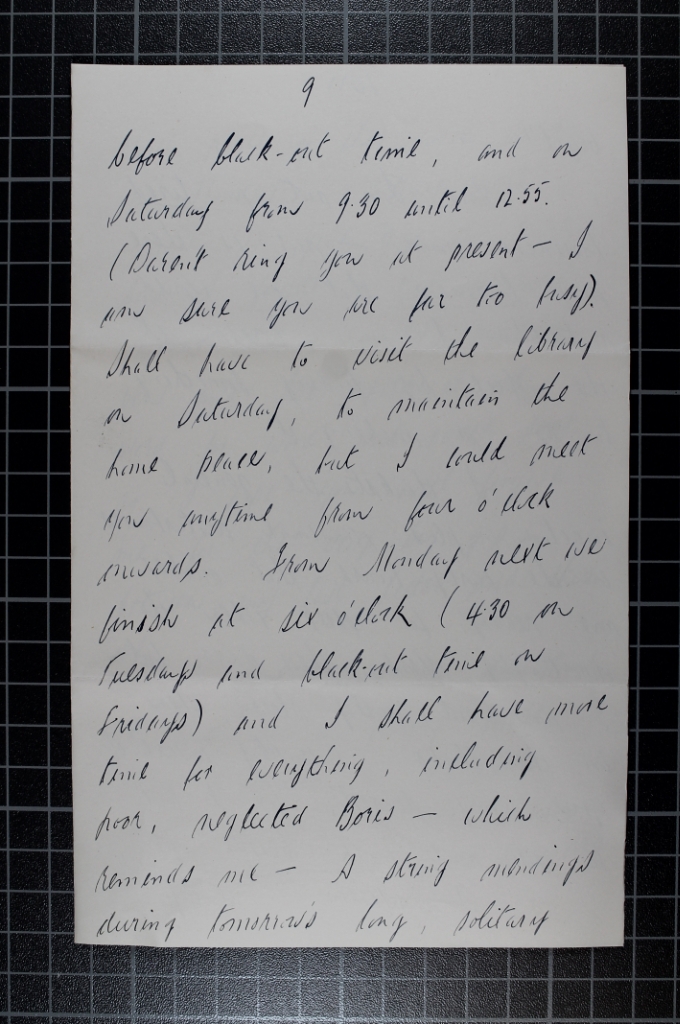 9
before black-out time, and on
Saturday from 9.30 until 12.55.
(Daren't ring you at present — I
am sure you are far too busy).
Shall have to visit the library
on Saturday, to maintain the
home peace, but I could meet
you anytime from four o'clock
onwards. From Monday next we
finish at six o'clock (4.30 on
Tuesdays and black-out time on
Fridays) and I shall have more
time for everything, including
poor, neglected Boris — which
reminds me — A string
during tomorrow's long, solitary